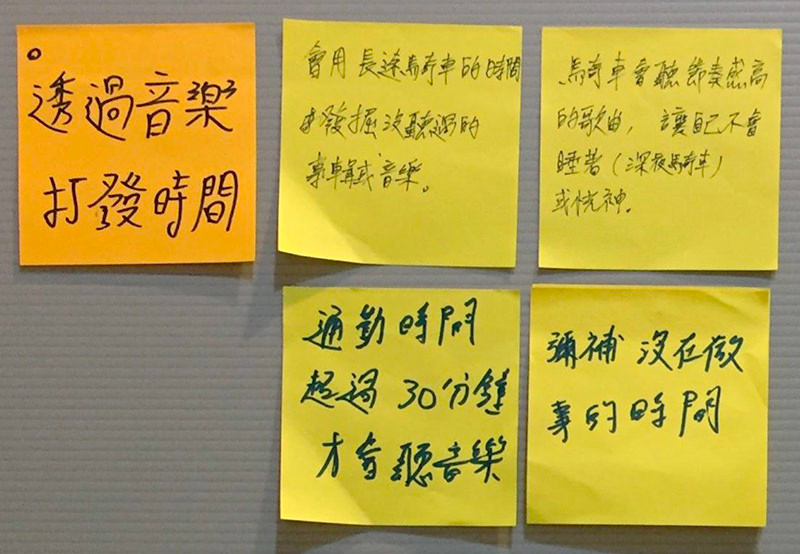 透過音樂
打發時間
會用長途騎車的時間
來發掘沒聽過的
專輯或音樂。
騎車會聽節奏感高
的歌曲，讓自己不會
睡著（深夜騎車）
或恍神.
通勤時間
超過30分鐘
才會聽音樂
彌補沒在做
事的時間